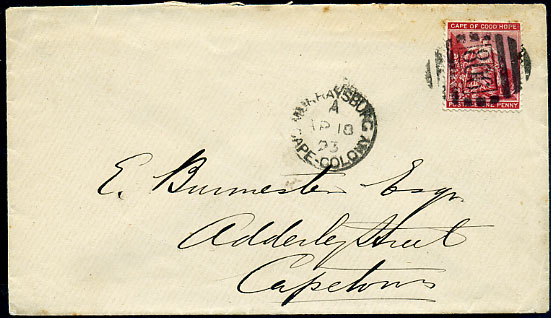 CAPE OF GOOD HOPE
POSTAGE ONE PENNY
MURRAYSBURG
A
AP 18
93
CAPE-COLONY
E. Burmester Esqr
Adderley Street
Capetown